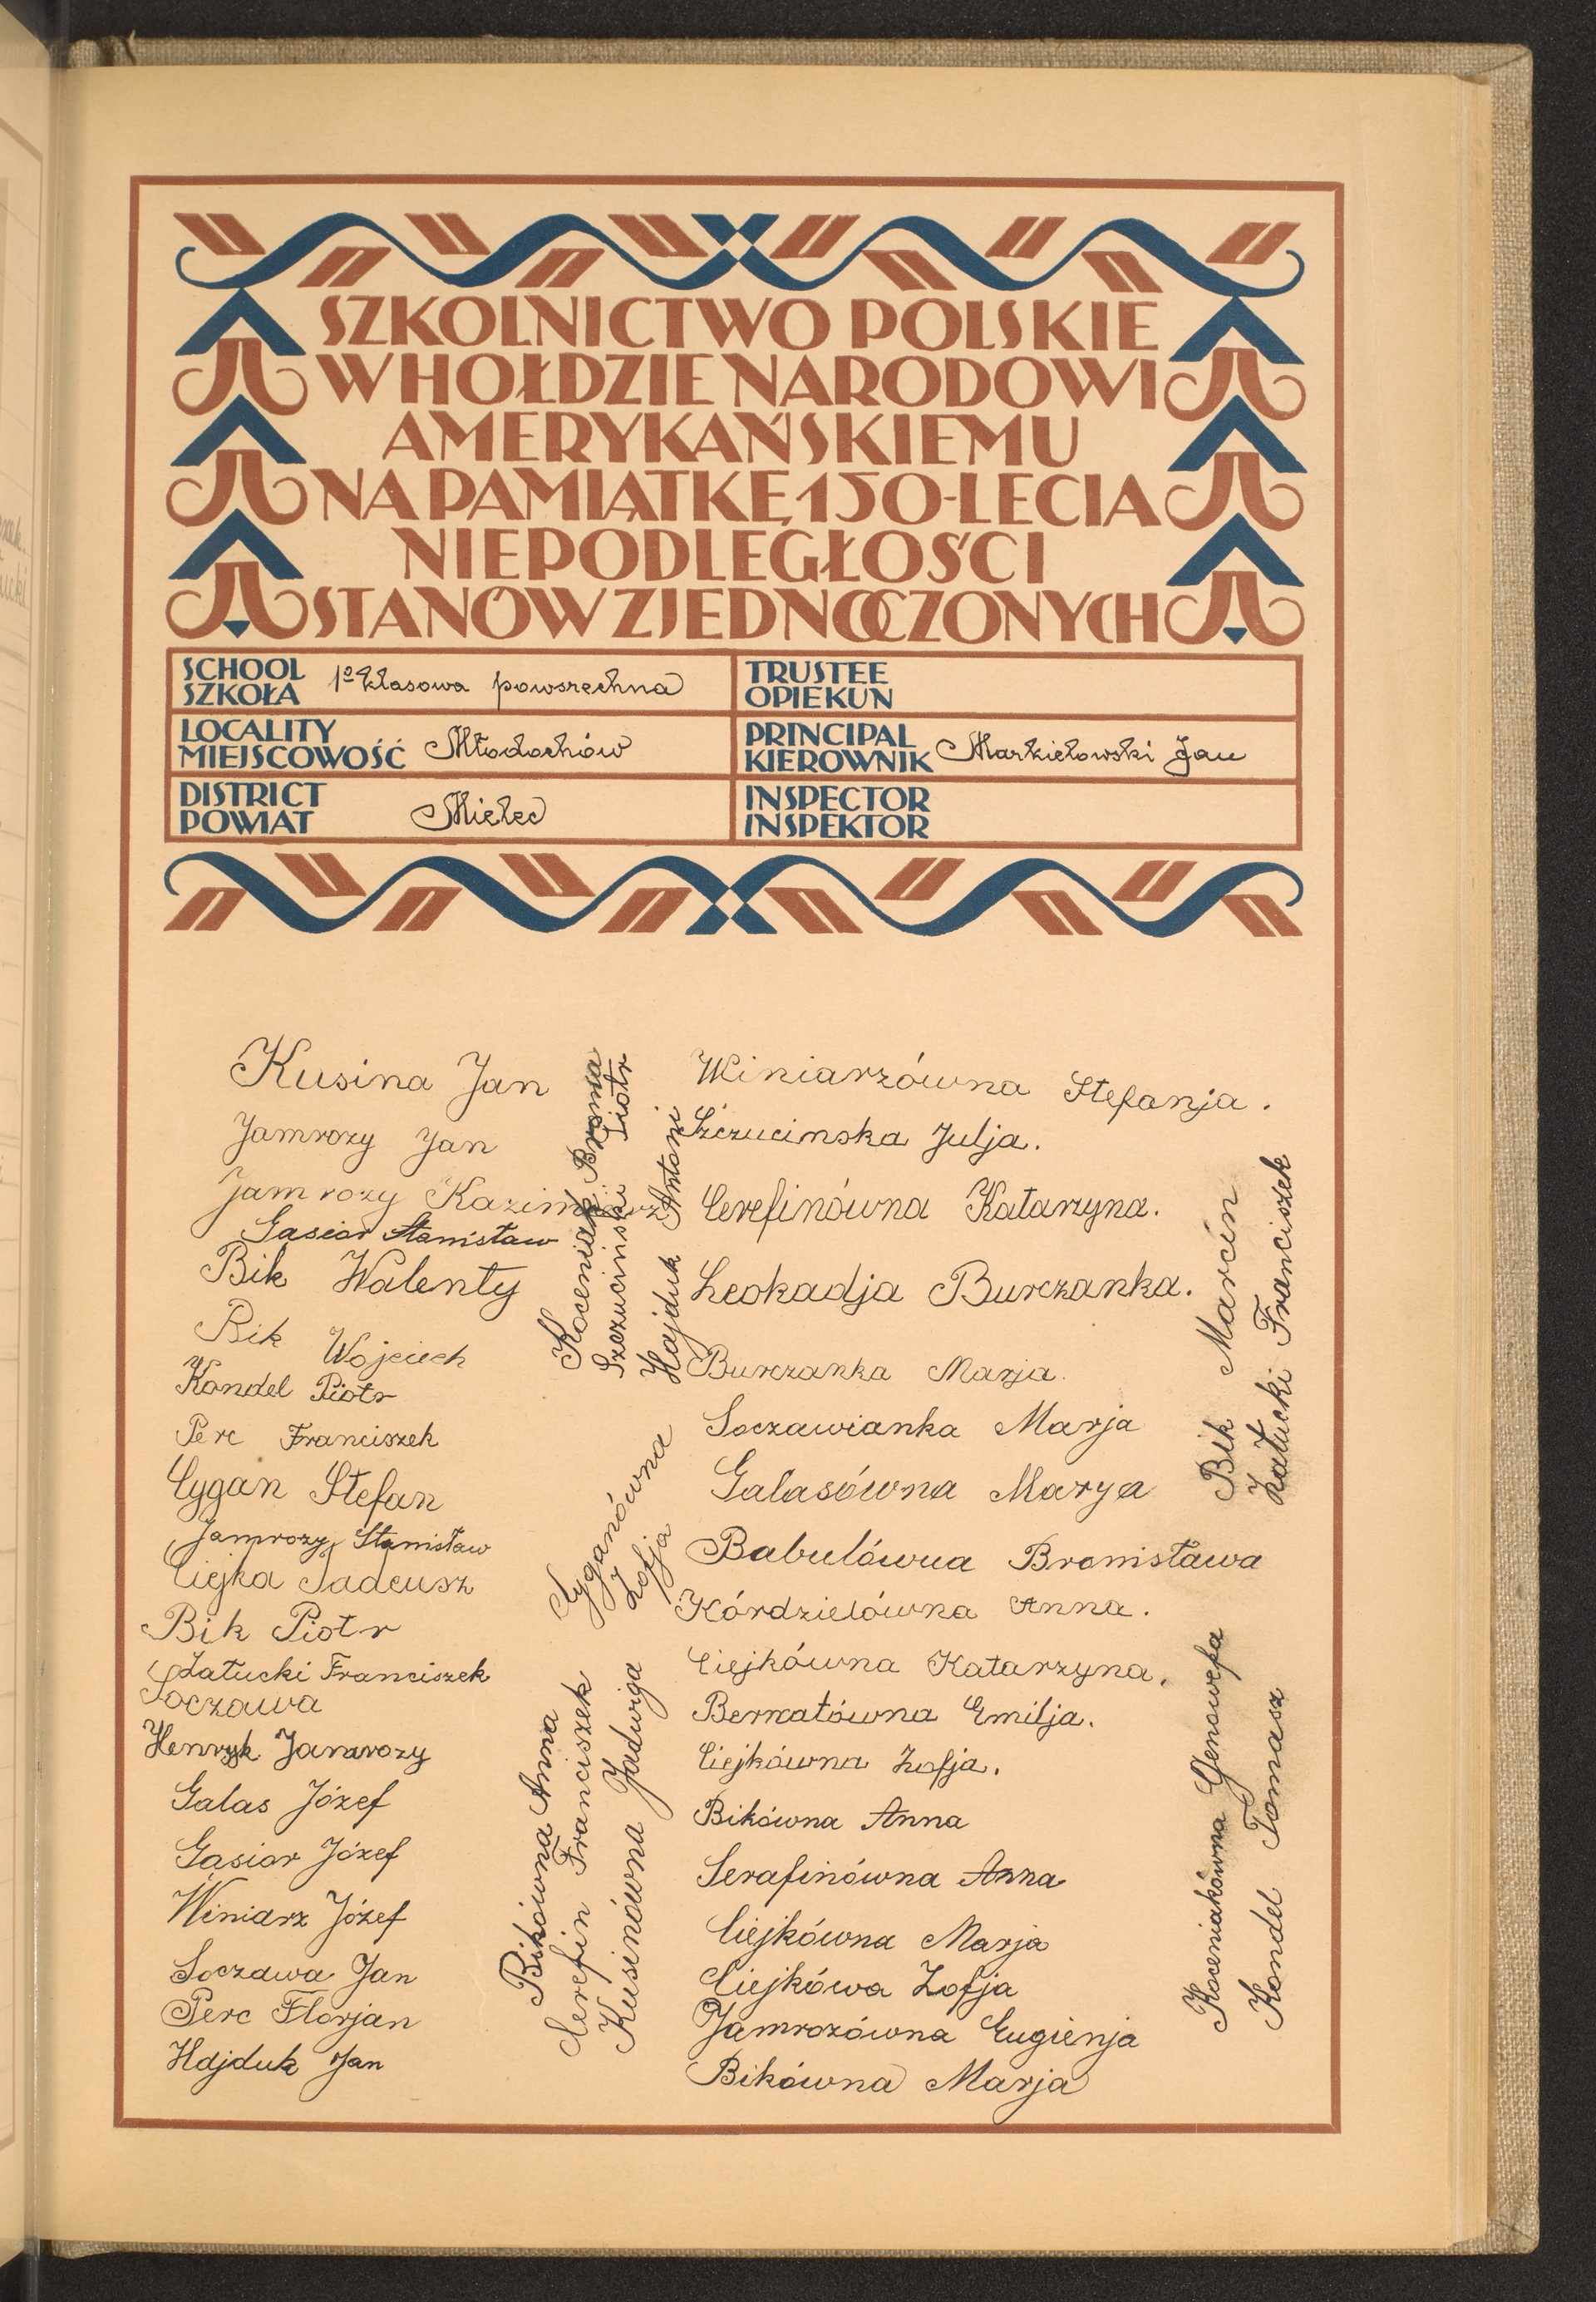 SZKOLNICTWO POLSKIE
W HOŁDZIE NARODOWI
AMERYKAŃSKIEMU
NA PAMIĄTKĘ 150-LECIA
NIEPODLEGŁOŚCI
STANÓW ZJEDNOCZONYCH
SCHOOL
SZKOŁA 1º klasowa powszechna
TRUSTEE
OPIEKUN
LOCALITY
MIEJSCOWOŚĆ Młodochów
PRINCIPAL
KIEROWNIK Markiełowski Jan
DISTRICT
POWIAT Mielec
INSPECTOR
INSPEKTOR
Kusina Jan
Jamrozy Jan
Jamrozy Kazimierz
Gasior Stanisław
Bik Walenty
Bik Wojciech
Kondel Piotr
Perc Franciszek
Cygan Stefan
Jamrozy Stanisław
Ciejka Tadeusz
Bik Piotr
Załucki Franciszek
Soczawa
Henryk Jamrozy
Galas Józef
Gąsior Józef
Winiarz Józef
Soczawa Jan
Perc Florjan
Hajduk Jan
Koceniak
Szczuciński Piotr
Hajduk Antoni
Cyganówna
Zofja
Bikówna Anna
Serefin Franciszek
Kusinówna Jadwiga
Winiarzówna Stefanja.
Szczucinska Julja.
Cerefinówna Katarzyna.
Leokadja Burczanka.
Burczanka Marja.
Soczawianka Marja
Galasówna Marya
Babulówna Bronisława
Kórdzielówna Anna.
Ciejkówna Katarzyna.
Bernatówna Emilja.
Ciejkówna Zofja.
Bikówna Anna
Serafinówna Anna
Ciejkówna Marja
Ciejkówa Zofja
Jamrozówna Eugienja
Bikówna Marja
Bik Marcin
Załucki Franciszek
Koceniakówna Genowefa
Kondel Tomasz